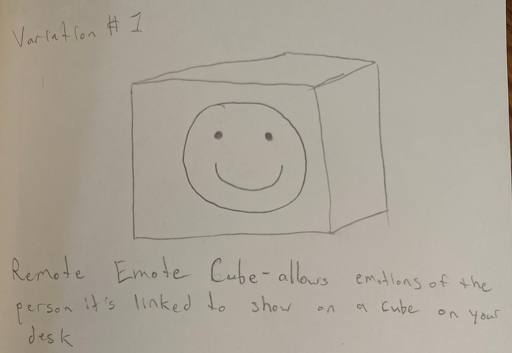 Variation # 1
Remote Emote Cube - allows emotions of the
person it's linked to show on a cube on your
desk